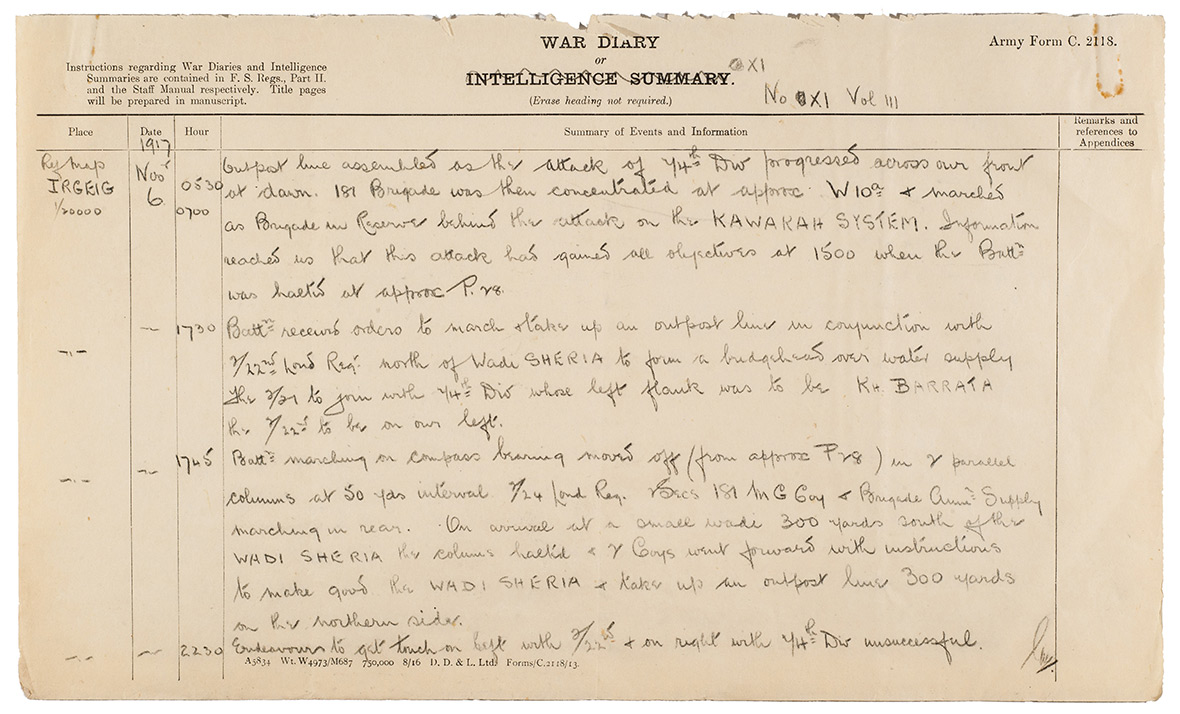 WAR DIARY
or
INTELLIGENCE SUMMARY.
(Erase heading not required.)
Army Form C. 2118.
Instructions regarding War Diaries and Intelligence
Summaries are contained in F. S. Regs., Part II.
and the Staff Manual respectively. Title pages
will be prepared in manuscript.
OXI
No OXI Vol III
Place
Date
Hour
Summary of Events and Information
Remarks and
references to
Appendices
1917
Ref Map
IRGEIG
1/20000
Nov
6
0530
0700
Outpost line assembled as the attack of 74th Div progressed across our front
at dawn. 181 Brigade was then concentrated at approx W10a & marched
as Brigade in Reserve behind the attack on the KAWAKAH SYSTEM. Information
reached us that this attack had gained all objectives at 1500 when the Battn
was halted at approx P.28.
1730 Battn received orders to march & take up an outpost line in conjunction with
2/22nd Lond Reg. north of Wadi SHERIA to form a bridgehead over water supply
The 2/21 to join with 74th Div whose left flank was to be KH. BARRATA
the 2/22nd to be on our left.
1745 Battn marching on compass bearing moved off (from approx P28) in 2 parallel
columns at 50 yds interval 2/24 Lond Reg. 2 Secs 181 M G Coy & Brigade Ammn Supply
marching in rear. On arrival at a small wadi 300 yards south of the
WADI SHERIA the columns halted & 2 Coys went forward with instructions
to make good the WADI SHERIA & take up an outpost line 300 yards
on the northern side.
2230 Endeavours to get touch on left with 2/22nd & on right with 74th Div unsuccessful.
A5834 Wt. W4973/M687 750,000 8/16 D. D. & L. Ltd. Forms/C.2118/13.